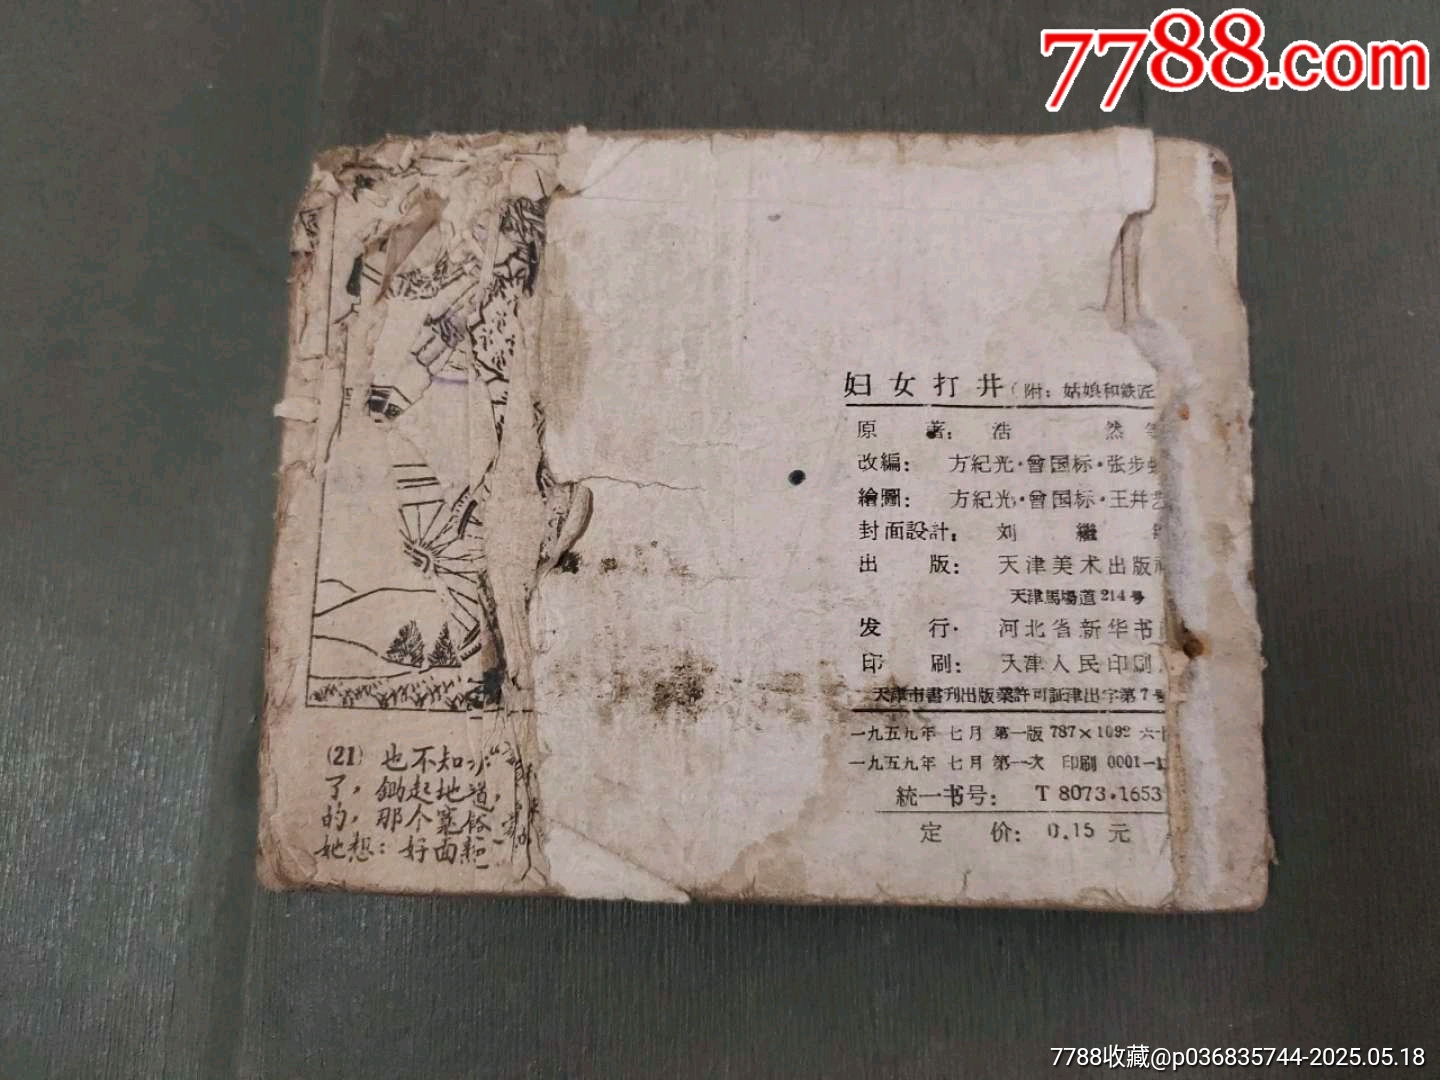 7788.com
妇女打井(附:姑娘和鉄匠
原著:浩然等
改編:方紀光·曾国标·张步
繪圖:方紀光·曾国标·王井
封面設計:刘繼
出版:天津美术出版社
天津馬場道214号
发行·河北省新华书
印刷:天津人民印刷
天津市書刊出版業許可証津出字第7号
一九五九年七月第一版787×1092六十
一九五九年七月第一次印刷0001—
統一书号:T8073·1653
定价:0.15元
(21)也不知
了,鋤起地道,
的,那个
她想:好面
7788收藏@p036835744-2025.05.18